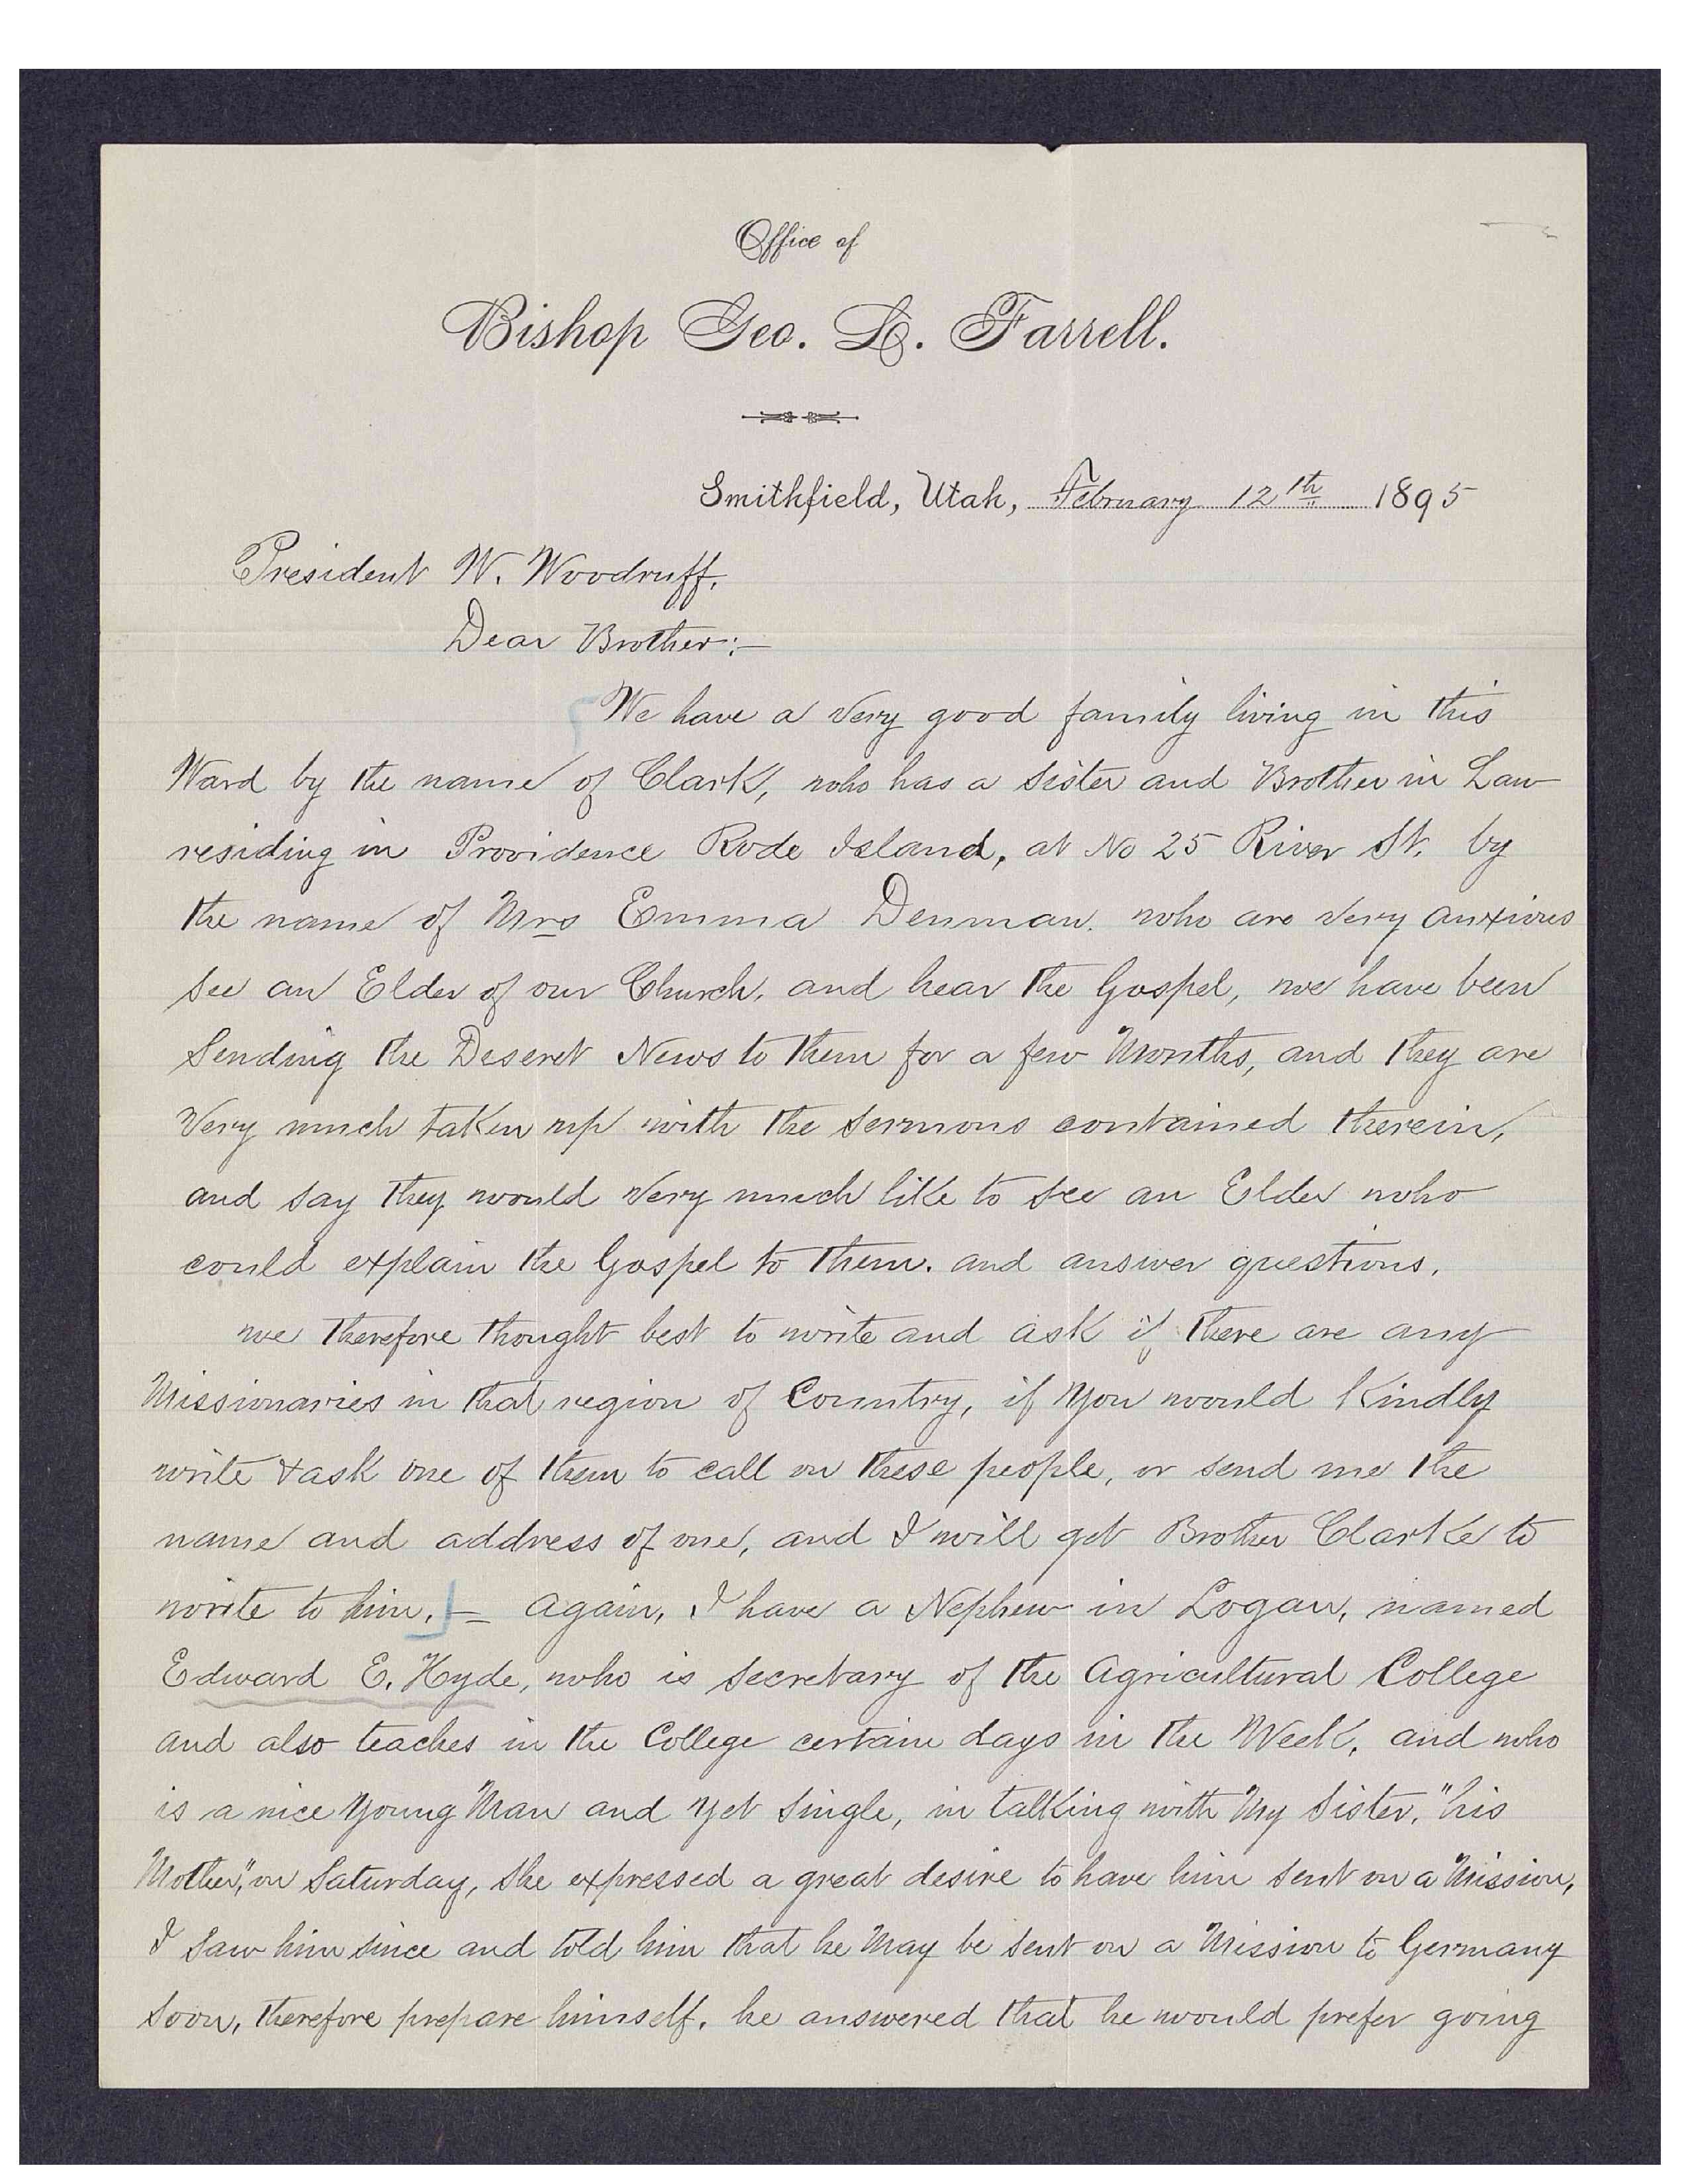 Office of
Bishop Geo. L. Farrell.
Smithfield, Utah, February 12th 1895
President W. Woodruff.
Dear Brother:—
We have a very good family living in this
Ward by the name of Clark, who has a sister and Brother in Law
residing in Providence Rode Island, at No 25 River St. by
the name of Mrs Emma Denman. who are very anxious
see an Elder of our Church. and hear the Gospel, we have been
Sending the Deseret News to them for a few Months, and they are
Very much taken up with the sermons contained therein,
and say they would very much like to see an Elder who
could explain the Gospel to them. and answer questions.
we therefore thought best to write and ask if there are any
Missionaries in that region of Country, if you would Kindly
write & ask one of them to call on these people, or send me the
name and address of one, and I will get Brother Clarke to
write to him. — Again, I have a Nephew in Logan, named
Edward E. Hyde, who is secretary of the Agricultural College
and also teaches in the College certain days in the Week, and who
is a nice Young Man and yet single, in talking with My Sister, "his
Mother", on Saturday, she expressed a great desire to have him sent on a Mission,
I saw him since and told him that he May be sent on a Mission to Germany
soon, therefore prepare himself. he answered that he would prefer going